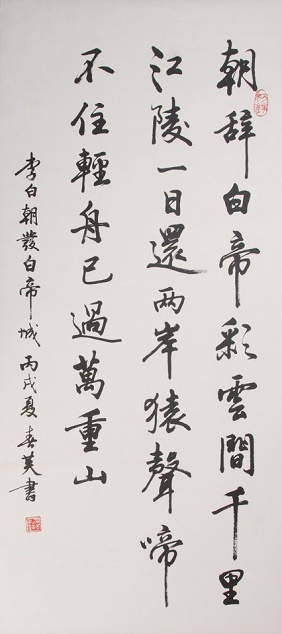 朝辞白帝彩雲間千里
江陵一日還两岸猿聲啼
不住輕舟已過萬重山
李白朝發白帝城丙戌夏春英書